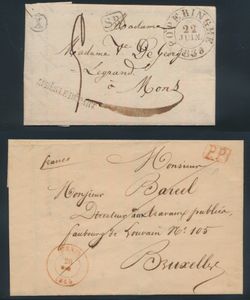 POPERINGHE
22
JUIN
1838
SR
Madame
Madame De George
Legrand
à Mons
P.P.
franco
Monsieur
Monsieur Bareel
Directeur aux travaux publics
faubourg de Louvain N° 105
Bruxelles